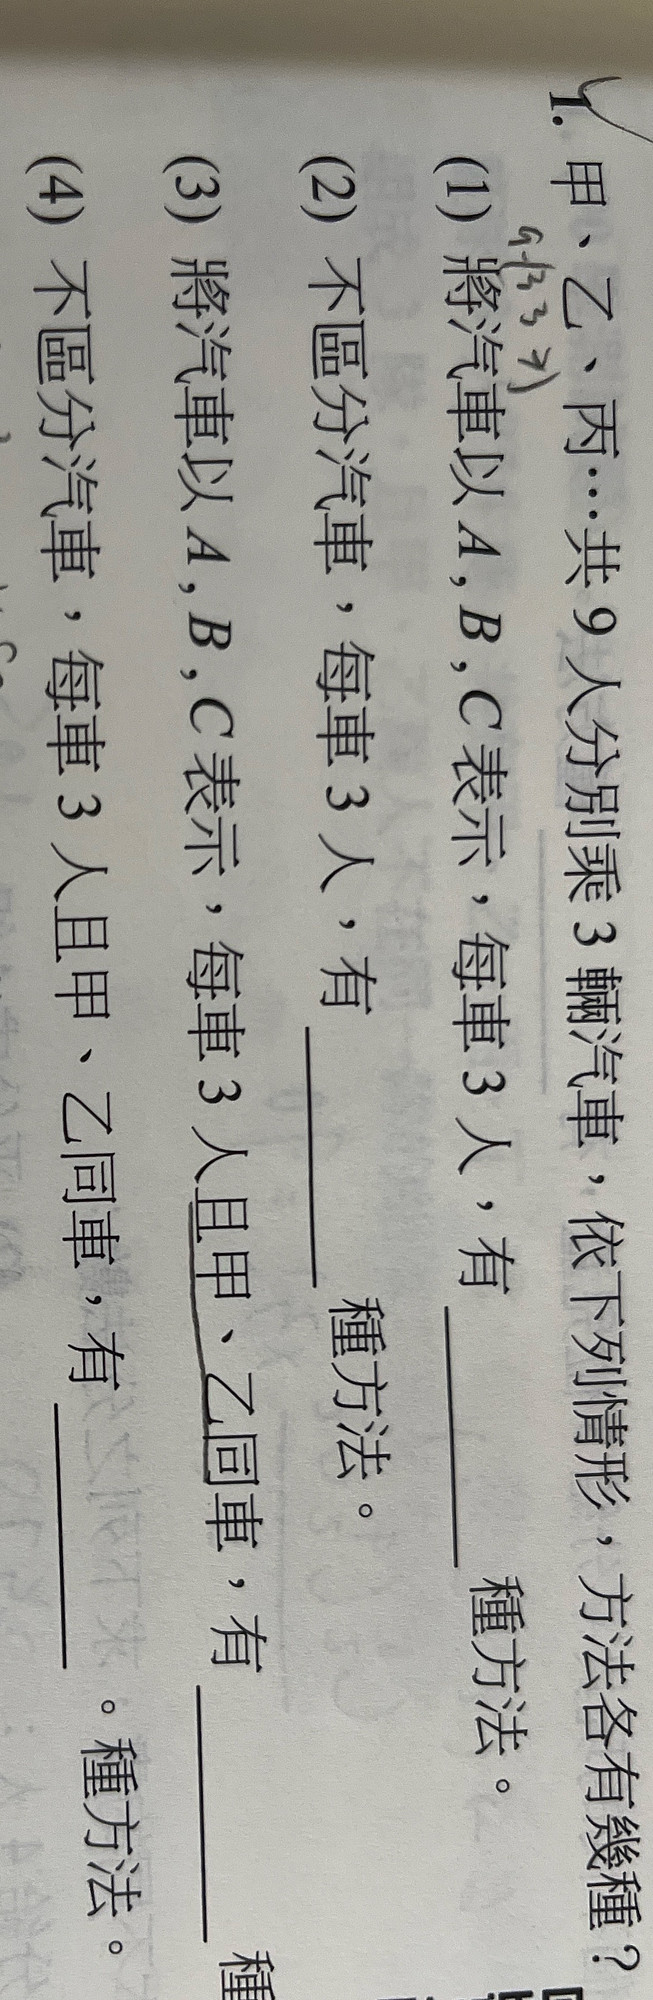 1. 甲、乙、丙…共9人分別乘3輛汽車，依下列情形，方法各有幾種？
(1) 將汽車以A,B,C表示，每車3人，有______種方法。
(2) 不區分汽車，每車3人，有______種方法。
(3) 將汽車以A,B,C表示，每車3人且甲、乙同車，有______種
(4) 不區分汽車，每車3人且甲、乙同車，有______。種方法。